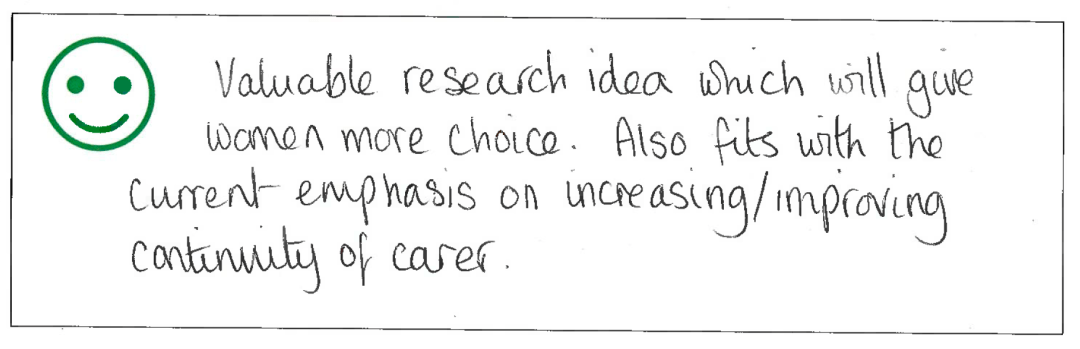 Valuable research idea which will give
women more choice. Also fits with the
current emphasis on increasing/improving
continuity of carer.